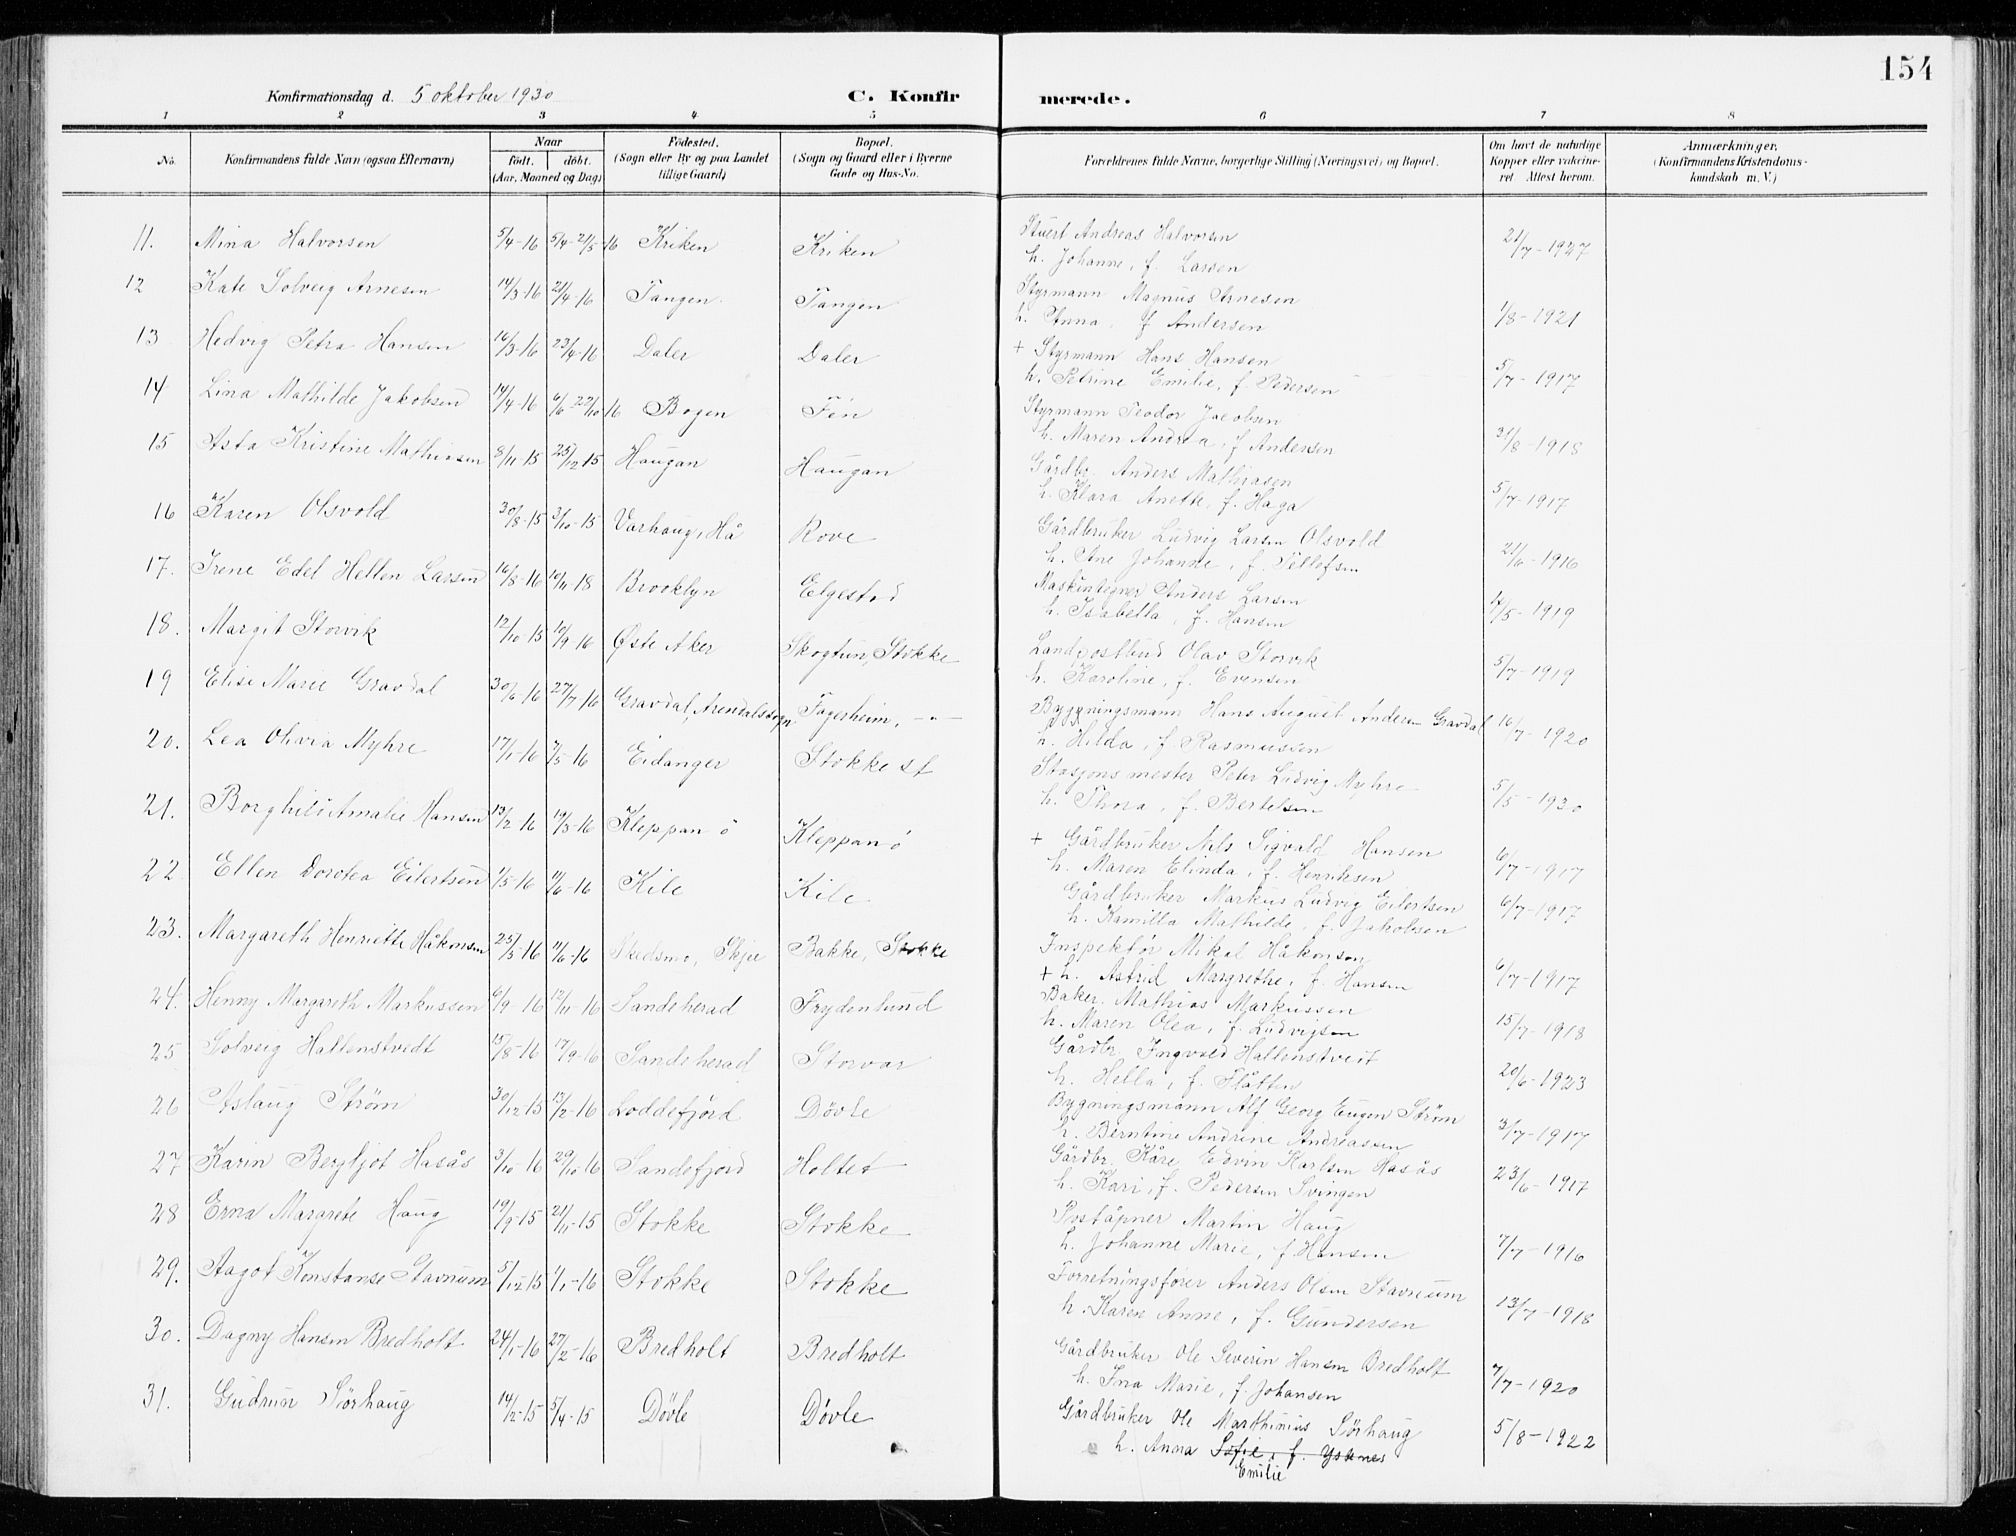 154
Konfirmationsdag d. 5 oktober 1930 C. Konfir merede.
1 2 3 4 5 6 7 8
No. Konfirmandens fulde Navn (ogsaa Efternavn) Naar födt. döbt. (Aar, Maaned og Dag) Födested. (Sogn eller By og paa Landet tillige Gaard) Bopæl. (Sogn og Gaard eller i Byerne Gade og Hus-No. Forældrenes fulde Navne, borgerlige Stilling (Næringsvei) og Bopæl. Om havt de naturlige Kopper eller vakcineret. Attest herom. Anmærkninger. (Konfirmandens Kristendomskundskab m. V.)
11. Mina Halvorsen 5/4-16 5/4-21/5-16 Kriken Kriken Stuert Andreas Halvorsen 21/7-1927
h. Johanne, f. Larsen
12 Kate Solveig Arnesen 14/3-16 21/4-16 Tangen Tangen Styrmann Magnus Arnesen 1/8-1921
h. Anna, f Andersen
13 Hedvig Petra Hansen 16/3-16 23/4-16 Daler Daler + Styrmann Hans Hansen 5/7-1917
h. Petrine Emilie, f. Pedersen
14 Lina Mathilde Jakobsen 14/4-16 6/6-22/10-16 Bogen Fén Styrmann Teodor Jacobsen 31/8-1918
h. Maren Andrea, f Andersen
15 Asta Kristine Mathiasen 8/11-15 25/12-15 Haugan Haugan Gårdbr. Anders Mathiasen 5/7-1917
h. Klara Anette, f. Haga
16 Karen Olsvold 30/8-15 3/10-15 Varhaug, Hå Rove Gårdbruker Ludvig Larsen Olsvold 21/6-1916
h. Ane Johanne, f. Tellefsen
17. Irene Edel Hellen Larsen 16/8-16 10/11-18 Brooklyn Elgestad Maskintegner Anders Larsen 4/5-1919
h. Isabella, f. Hansen
18. Margit Storvik 12/10-15 10/9-16 Øste Aker Skogtun, Stokke Landpostbud Olav Storvik 5/7-1919
h. Karoline, f. Evensen
19 Elise Marie Gravdal 30/6-16 27/7-16 Gravdal, Arendalssogn Fagerheim, -"- Byggningsmann Hans August Andersen Gravdal 16/7-1920
h. Hilda, f. Rasmussen
20. Lea Olivia Myhre 17/1-16 7/5-16 Eidanger Stokke st Stasjonsmester Peter Ludvig Myhre 5/5-1930
h. Thora, f. Bertelsen
21. Borghild Amalie Hansen 13/2-16 19/3-16 Kleppan ö Kleppan ö + Gårdbruker Nils Sigvald Hansen 6/7-1917
h. Maren Elinda, f. Henriksen
22 Ellen Dorotea Eilertsen 1/5-16 11/6-16 Kile Kile Gårdbruker Markus Ludvig Eilertsen 6/7-1917
h. Kamilla Mathilde, f. Jakobsen
23. Margareth Henriette Håkonsen 25/3-16 11/6-16 Skedsmo, Skjee Bakke, Stokke Inspektør Mikal Håkonsen 6/7-1917
+ h. Astrid Margrethe, f. Hansen
24. Henny Margareth Markussen 6/9-16 12/11-16 Sandeherad Frydenlund Baker Mathias Markussen 15/7-1918
h. Maren Olea, f. Ludvigsen
25 Solveig Hallenstvedt 15/8-16 17/9-16 Sandeherad Storvar Gårdbr Ingvald Hallenstvedt 20/6-1923
h. Hella, f. Flåtten
26 Aslaug Strøm 30/12-15 13/2-16 Loddefjord Døvle Bygningsmann Alf Georg Eugen Strøm 3/7-1917
h. Berntine Andrine Andreassen
27 Karin Bergljot Hasås 3/10-16 29/10-16 Sandefjord Holtet Gårdbr. Kåre Edvin Karlsen Hasås 23/6-1917
h. Kari, f. Pedersen Svingen
28 Erna Margrete Haug 19/9-15 21/11-15 Stokke Stokke Poståpner Martin Haug 7/7-1916
h. Johanne Marie, f. Hansen
29. Aagot Konstanse Stavnum 5/12-15 1/1-16 Stokke Stokke Forretningsfører Anders Olsen Stavnum 13/7-1918
h. Karen Anne, f. Gundersen
30. Dagny Hansen Bredholt 24/1-16 27/2-16 Bredholt Bredholt Gårdbruker Ole Severin Hansen Bredholt 7/7-1920
h. Ina Marie, f. Johansen
31. Gudrun Sørhaug 14/2-15 5/4-15 Døvle Døvle Gårdbruker Ole Marthinius Sørhaug 5/8-1922
h. Anna Sofie, f. Ysknes
Emilie